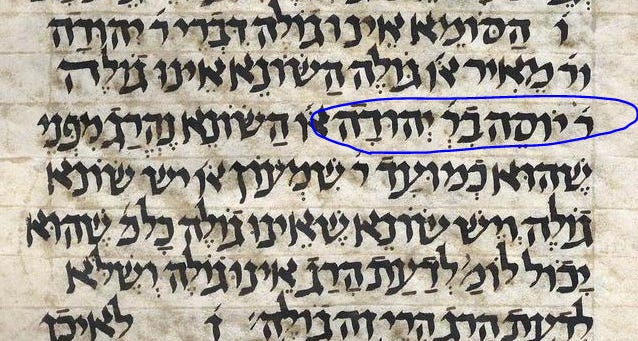 ו הסומא אינו גולה דברי ר' יהודה
ור' מאיר או' גולה השונא אינו גולה
ר' יוסה בר' יהודה או' השונא נהרג מפני
שהוא כמועד ר' שמעון או' יש שונא
גולה ויש שונא שאינו גולה כל שהוא
יכול לומ' לדעת הרג אינו גולה ושלא
לדעת הרג הרי זה גולה ו לאיכן